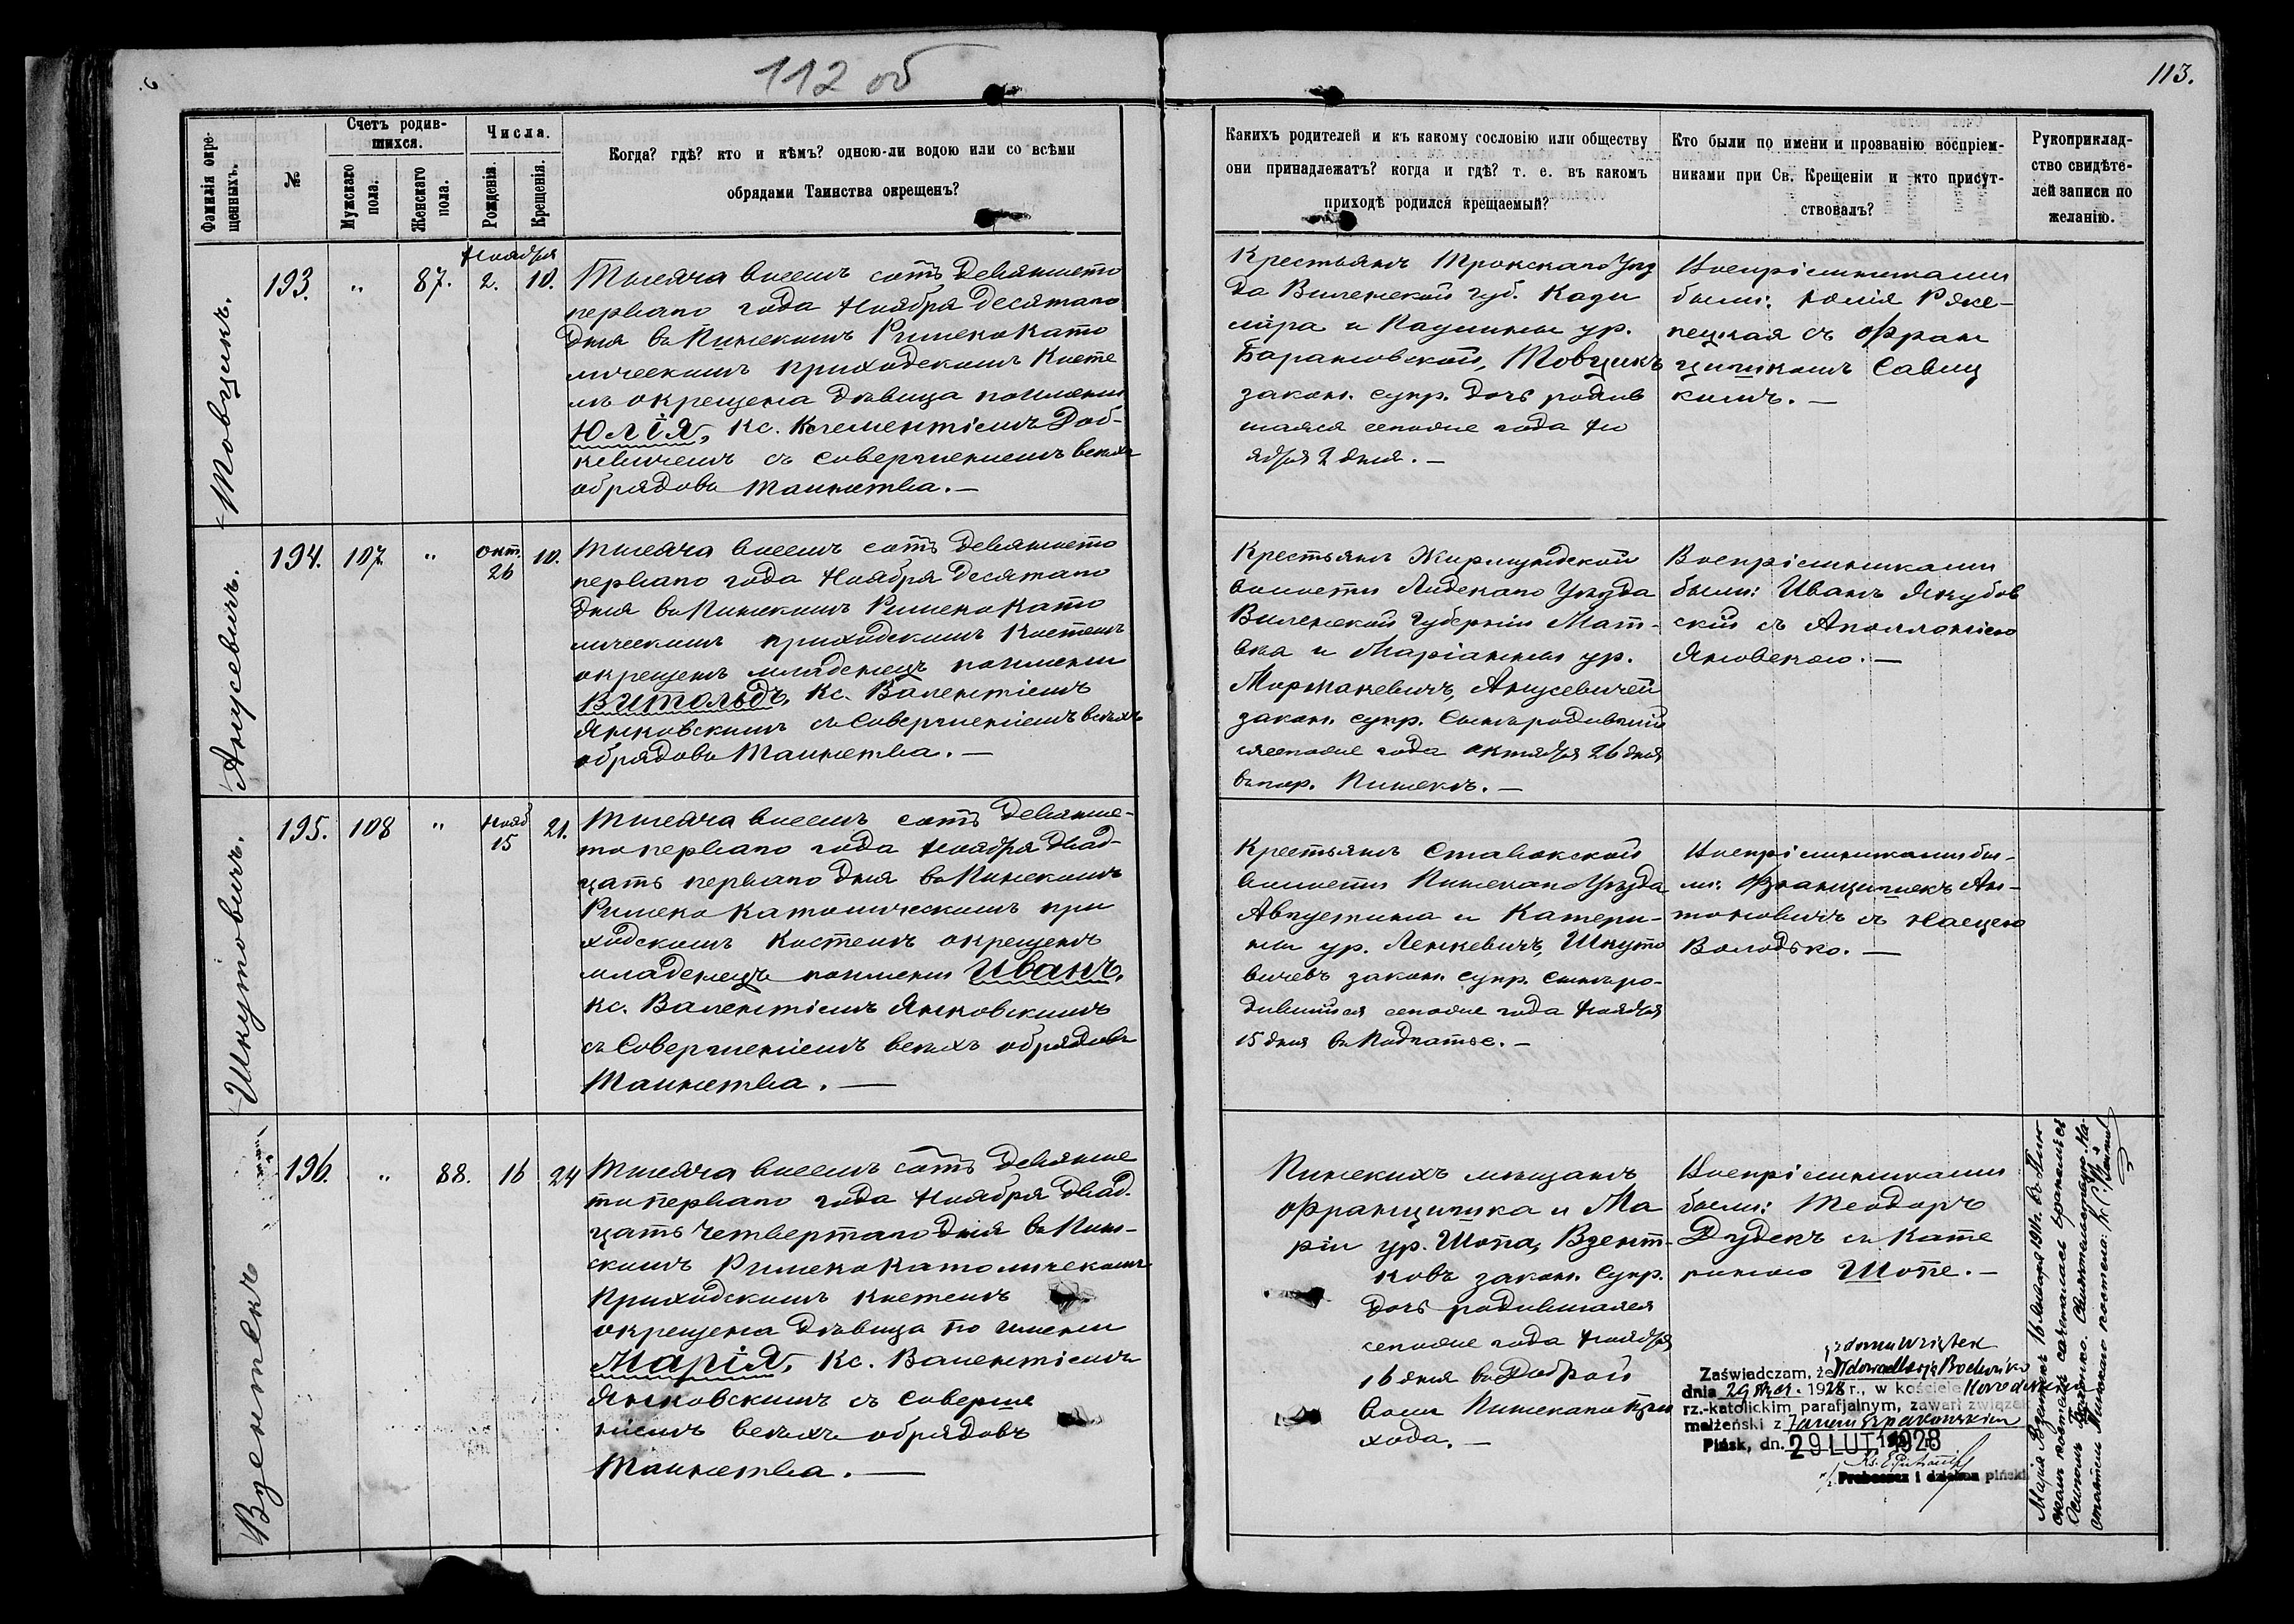 112 об
113.
Фамилія окре-
щенныхъ.
№
Счетъ родив-
шихся.
Мужскаго
пола.
Женскаго
пола.
Числа.
Рожденія.
Крещенія.
Когда? гдѣ? кто и кѣмъ? одною-ли водою или со всѣми
обрядами Таинства окрещенъ?
Какихъ родителей и къ какому сословію или обществу
они принадлежатъ? когда и гдѣ? т. е. въ какомъ
приходѣ родился крещаемый?
Кто были по имени и прозванію воспріем-
никами при Св. Крещеніи и кто присут-
ствовалъ?
Рукоприклад-
ство свидѣте-
лей записи по
желанію.
Товцикъ.
193.
"
87.
Ноября
2.
10.
Тысяча восемь сотъ девяносто
перваго года Ноября десятаго
дня въ Пинскомъ Римско Като
лическомъ приходскомъ Косте
лѣ окрещена дѣвица по имени
Юлія, Кс. Клементіемъ Роб-
кевичемъ съ совершениемъ всѣхъ
обрядовъ Таинства. —
Крестьянъ Трокскаго Уѣз
да Виленской Губ. Кази
мира и Паулины ур.
Барановской, Товцикъ
закон. супр. дочь родив
шаяся сего же года Но
ября 2 дня. —
Воспріемниками
были: Юлія Рже-
пецкая съ Фран
цишкомъ Савиц
кимъ. —
Анусевичъ.
194.
107
"
Окт.
26
10.
Тысяча восемь сотъ девяносто
перваго года Ноября десятаго
дня въ Пинскомъ Римско Като
лическомъ приходскомъ Костелѣ
окрещенъ младенецъ по имени
Витольдъ, Кс. Валентіемъ
Янковскимъ съ совершеніемъ всѣхъ
обрядовъ Таинства. —
Крестьянъ Жирмундской
волости Лидскаго Уѣзда
Виленской Губерніи Мат-
вѣя и Маріанны ур.
Моржакевичъ, Анусевичей
закон. супр. сынъ родившій
ся сего же года октября 26 дня
въ гор. Пинскѣ. —
Воспріемниками
были: Иванъ Якубов
скій съ Аполлоніею
Яновскою. —
Шкутовичъ.
195.
108
"
Нояб
15
21.
Тысяча восемь сотъ девяносе-
то перваго года Ноября двад-
цать перваго дня въ Пинскомъ
Римско Католическомъ при
ходскомъ Костелѣ окрещенъ
младенецъ по имени Иванъ,
Кс. Валентіемъ Янковскимъ
съ совершеніемъ всѣхъ обрядовъ
Таинства. —
Крестьянъ Ставокской
волости Пинскаго Уѣзда
Августина и Катери-
ны ур. Ленкевичъ, Шкуто
вичевъ закон. супр. сынъ ро-
дившійся сего же года Ноября
15 дня въ Подгатье. —
Воспріемниками бы-
ли: Францишекъ Ан-
тоновичъ съ
Володько. —
Вдентекъ
196.
"
88.
16
24
Тысяча восемь сотъ девянос
то перваго года Ноября двад.
цать четвертаго дня въ Пин-
скомъ Римско Католическомъ
Приходскомъ Костелѣ
окрещена дѣвица по имени
Марія, Кс. Валентіемъ
Янковскимъ съ соверше
ніемъ всѣхъ обрядовъ
Таинства. —
Пинскихъ мѣщанъ
Францишка и Ма
ріи ур. Шопа, Вдент-
ковъ закон. супр.
дочь родившаяся
сего же года Ноября
16 дня въ Доброй
Воли Пинскаго при
хода. —
Воспріемниками
были: Теодоръ
Дудекъ съ Кате
риною Шопе. —
z domu Wziątek
Zaświadczam, że Wdowa Marja
dnia 29 1928 r., w kościele
rz.-katolickim parafjalnym, zawarł związek
małżeński z Janem Szpakowskim
Pińsk, dn. 29 LUT. 1928
Proboszcz i dziekan piński
Марія 16 Января 1911г. въ Пин-
скомъ костелѣ сочеталась бракомъ съ
Осипомъ